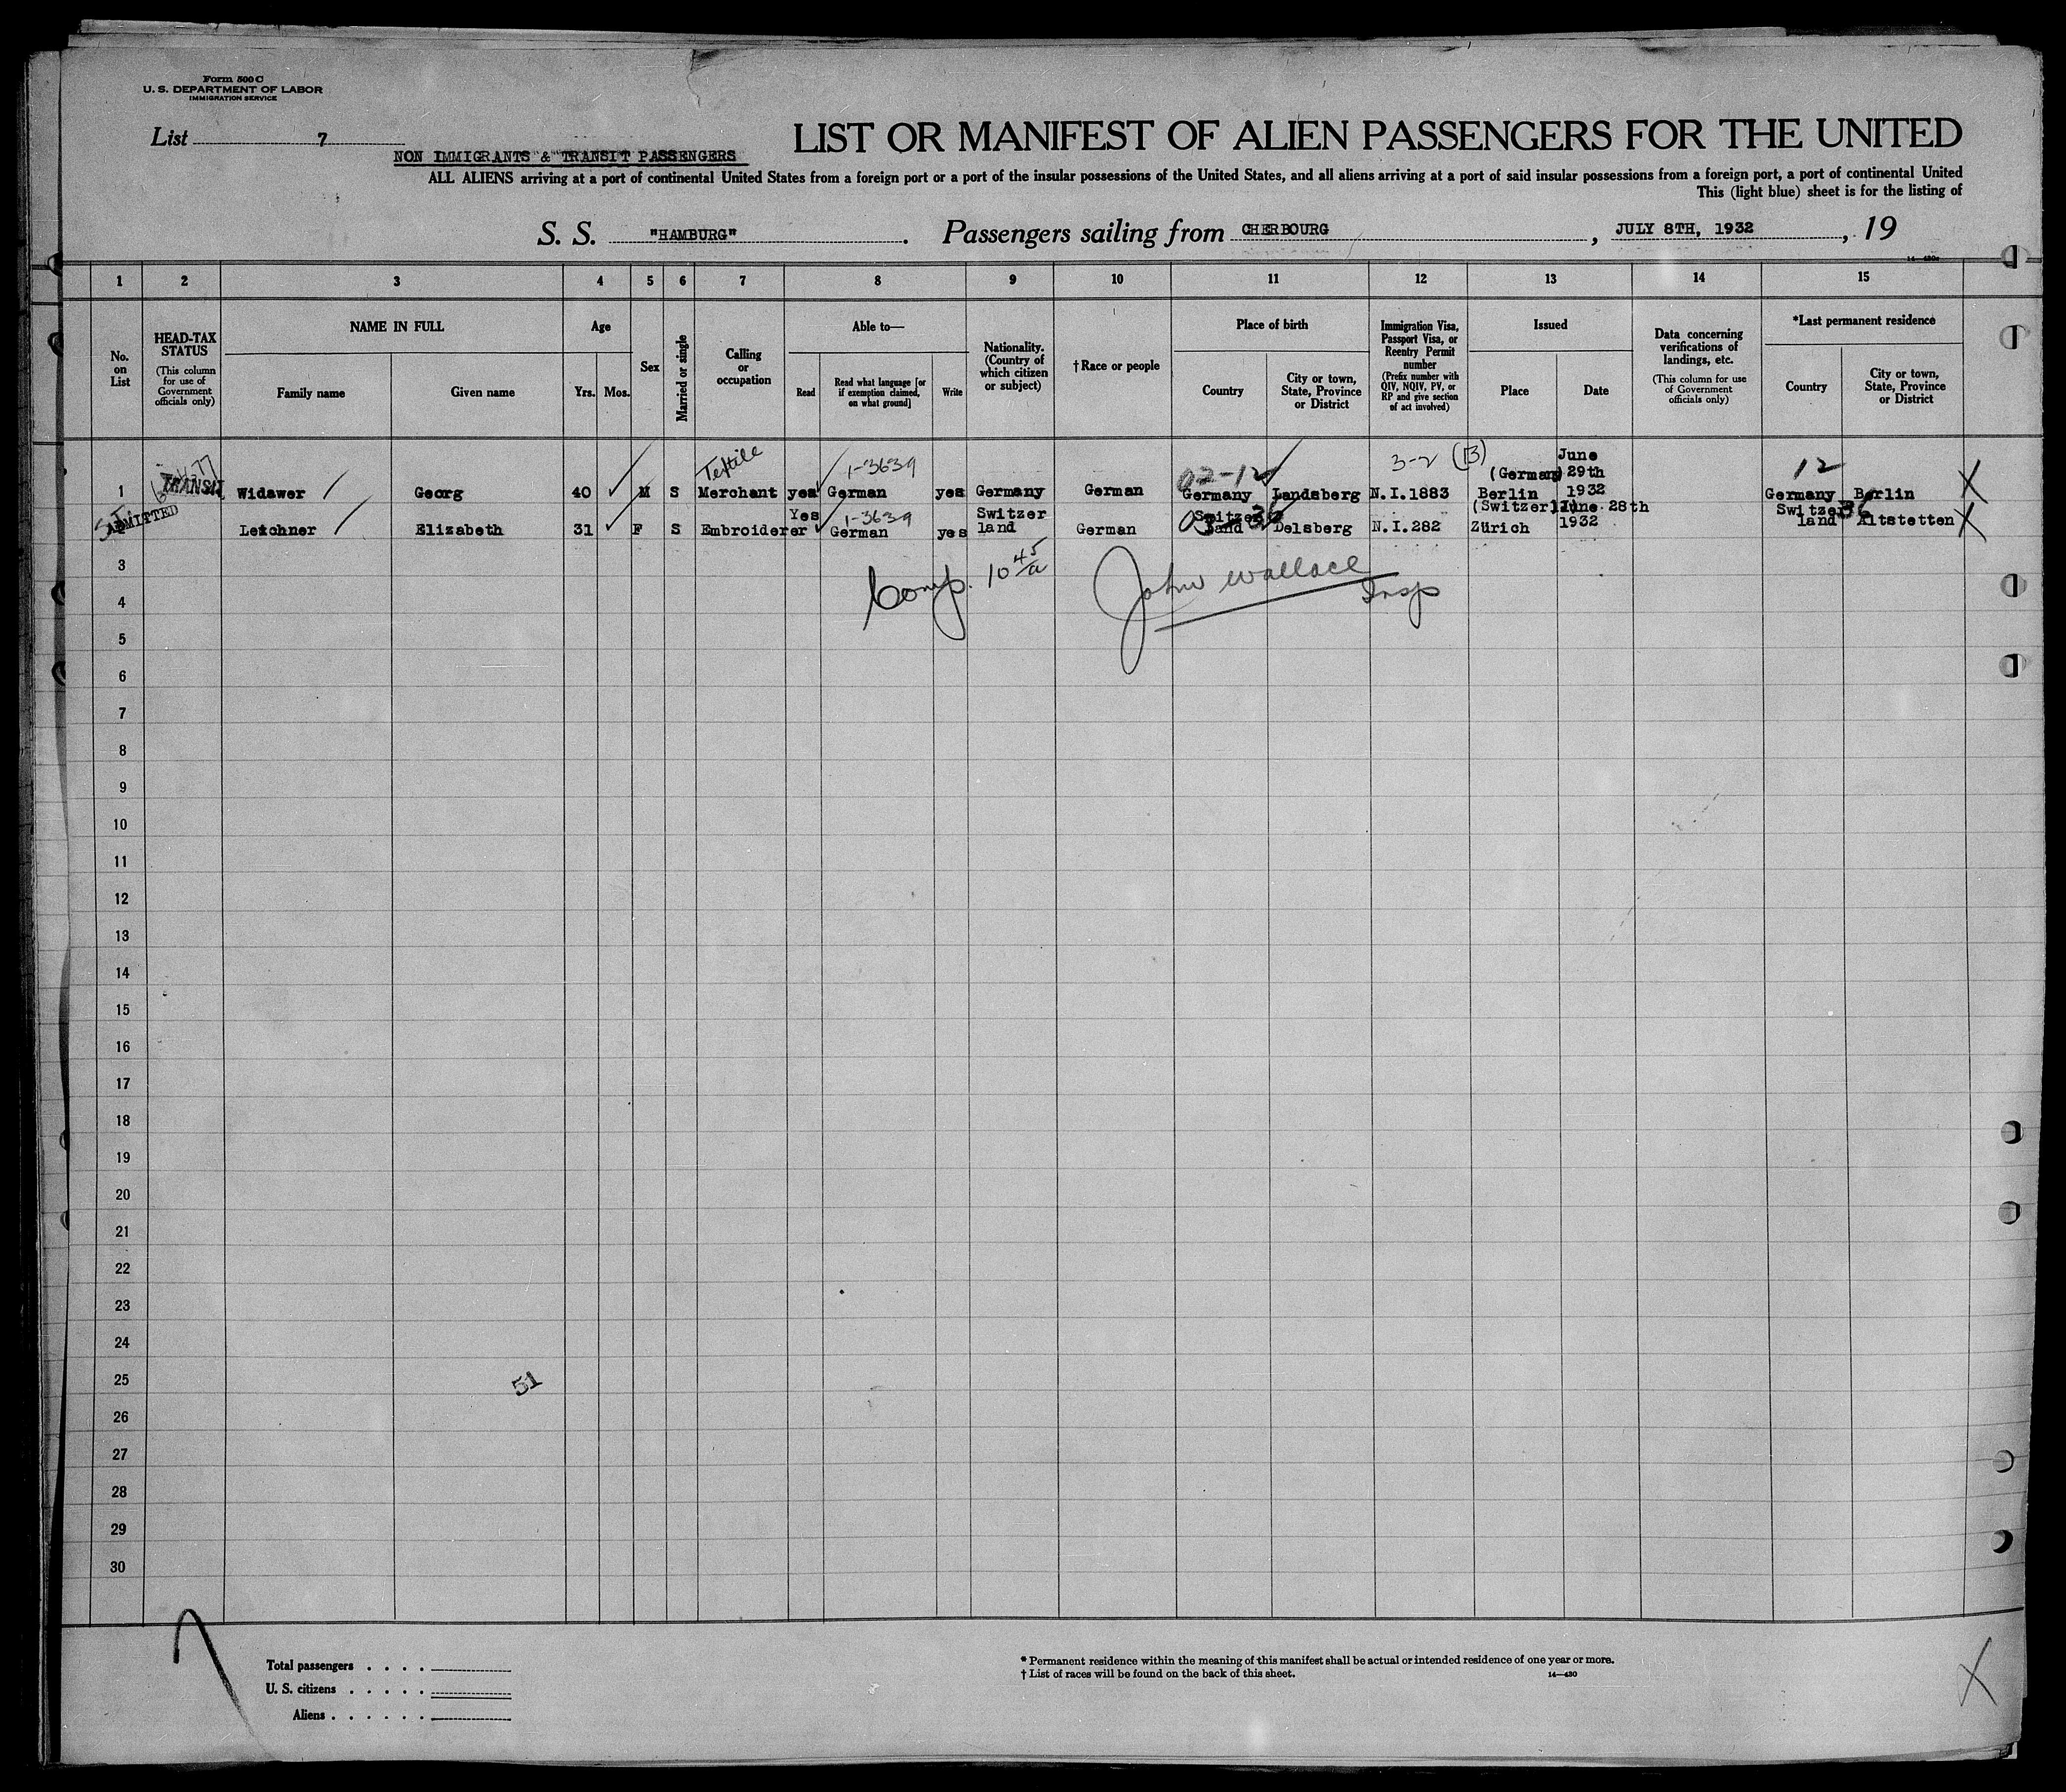 Form 500 C
U. S. DEPARTMENT OF LABOR
IMMIGRATION SERVICE
List 7
NON IMMIGRANTS & TRANSIT PASSENGERS
LIST OR MANIFEST OF ALIEN PASSENGERS FOR THE UNITED
ALL ALIENS arriving at a port of continental United States from a foreign port or a port of the insular possessions of the United States, and all aliens arriving at a port of said insular possessions from a foreign port, a port of continental United
This (light blue) sheet is for the listing of
S. S. "HAMBURG". Passengers sailing from CHERBOURG, JULY 8TH, 1932, 19
1 2 3 4 5 6 7 8 9 10 11 12 13 14 15
No. on List
HEAD-TAX STATUS
(This column for use of Government officials only)
NAME IN FULL
Family name
Given name
Age
Yrs. Mos.
Sex
Married or single
Calling or occupation
Able to—
Read
Read what language [or if exemption claimed, on what ground]
Write
Nationality. (Country of which citizen or subject)
† Race or people
Place of birth
Country
City or town, State, Province or District
Immigration Visa, Passport Visa, or Reentry Permit number
(Prefix number with QIV, NQIV, PV, or RP and give section of act involved)
Issued
Place
Date
Data concerning verifications of landings, etc.
(This column for use of Government officials only)
*Last permanent residence
Country
City or town, State, Province or District
Textile 1-3639 02-12 3-2 (3) (Germany) June 29th 12
1 TRANSIT Widawer Georg 40 M S Merchant yes German yes Germany German Germany Landsberg N.I.1883 Berlin 1932 Germany Berlin X
ADMITTED Leichner Elizabeth 31 F S Embroiderer Yes 1-3639 German yes Switzer land German Switzer land 03 36 Delsberg N.I.282 (Switzerl.) Zürich June 28th 1932 Switzer land 36 Altstetten X
3
Comp. 10 45/a John Wallace
Insp
4
5
6
7
8
9
10
11
12
13
14
15
16
17
18
19
20
21
22
23
24
25
51
26
27
28
29
30
Total passengers . . . .
U. S. citizens . . . . .
Aliens . . . . . .
* Permanent residence within the meaning of this manifest shall be actual or intended residence of one year or more.
† List of races will be found on the back of this sheet. 14—430
X